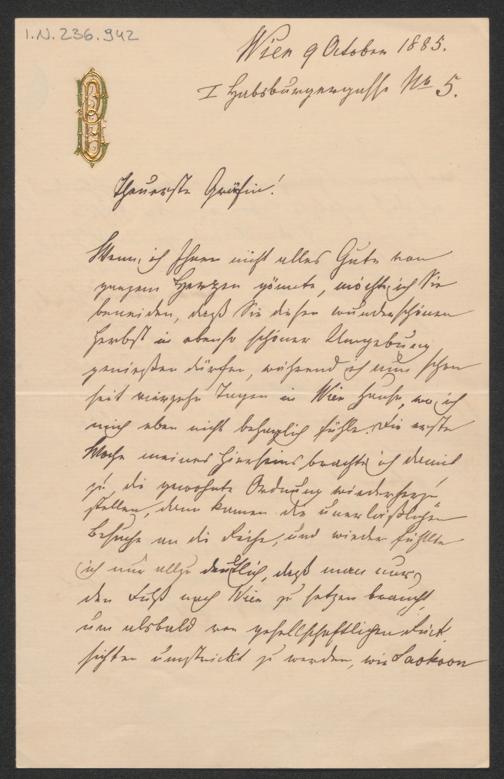 I.N. 236.942
Wien 9 October 1885.
I Habsburgergasse Nr 5.
Theuerste Gräfin!
Wenn ich Ihnen nicht alles Gute von
ganzem Herzen gönnte, möchte ich Sie
beneiden, daß Sie diesen wunderschönen
Herbst in ebenso schöner Umgebung
genießen dürfen, während ich nun schon
seit vierzehn Tagen in Wien hause, wo ich
mich eben nicht behaglich fühle. Die erste
Woche meines Hierseins brachte ich damit
zu, die gewohnte Ordnung wiederherzu
stellen, dann kamen die unerläßlichen
Besuche an die Reihe, und wieder fühlte
ich nur allzu deutlich, daß man nur
den Fuß nach Wien zu setzen braucht,
um alsbald von gesellschaftlichen Rück
sichten umstrickt zu werden, wie Laokoon